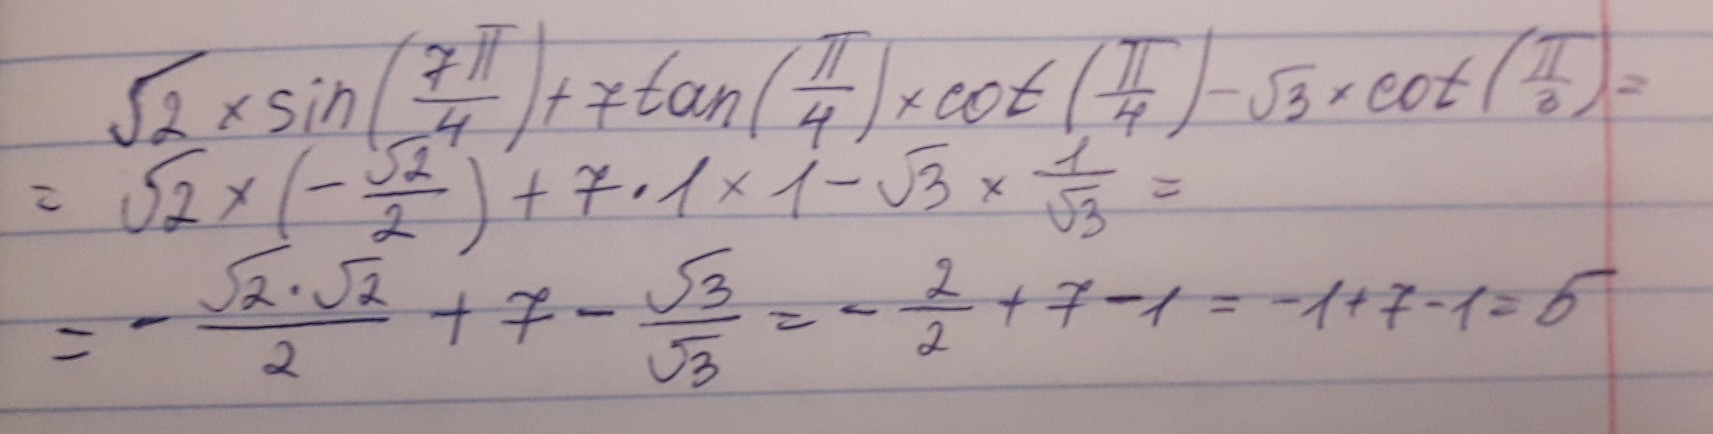 √2 × sin(7π/4) + 7tan(π/4) × cot(π/4) - √3 × cot(π/3) =
= √2 × (-√2/2) + 7·1 × 1 - √3 × 1/√3 =
= - √2·√2/2 + 7 - √3/√3 = - 2/2 + 7 - 1 = -1+7-1=5